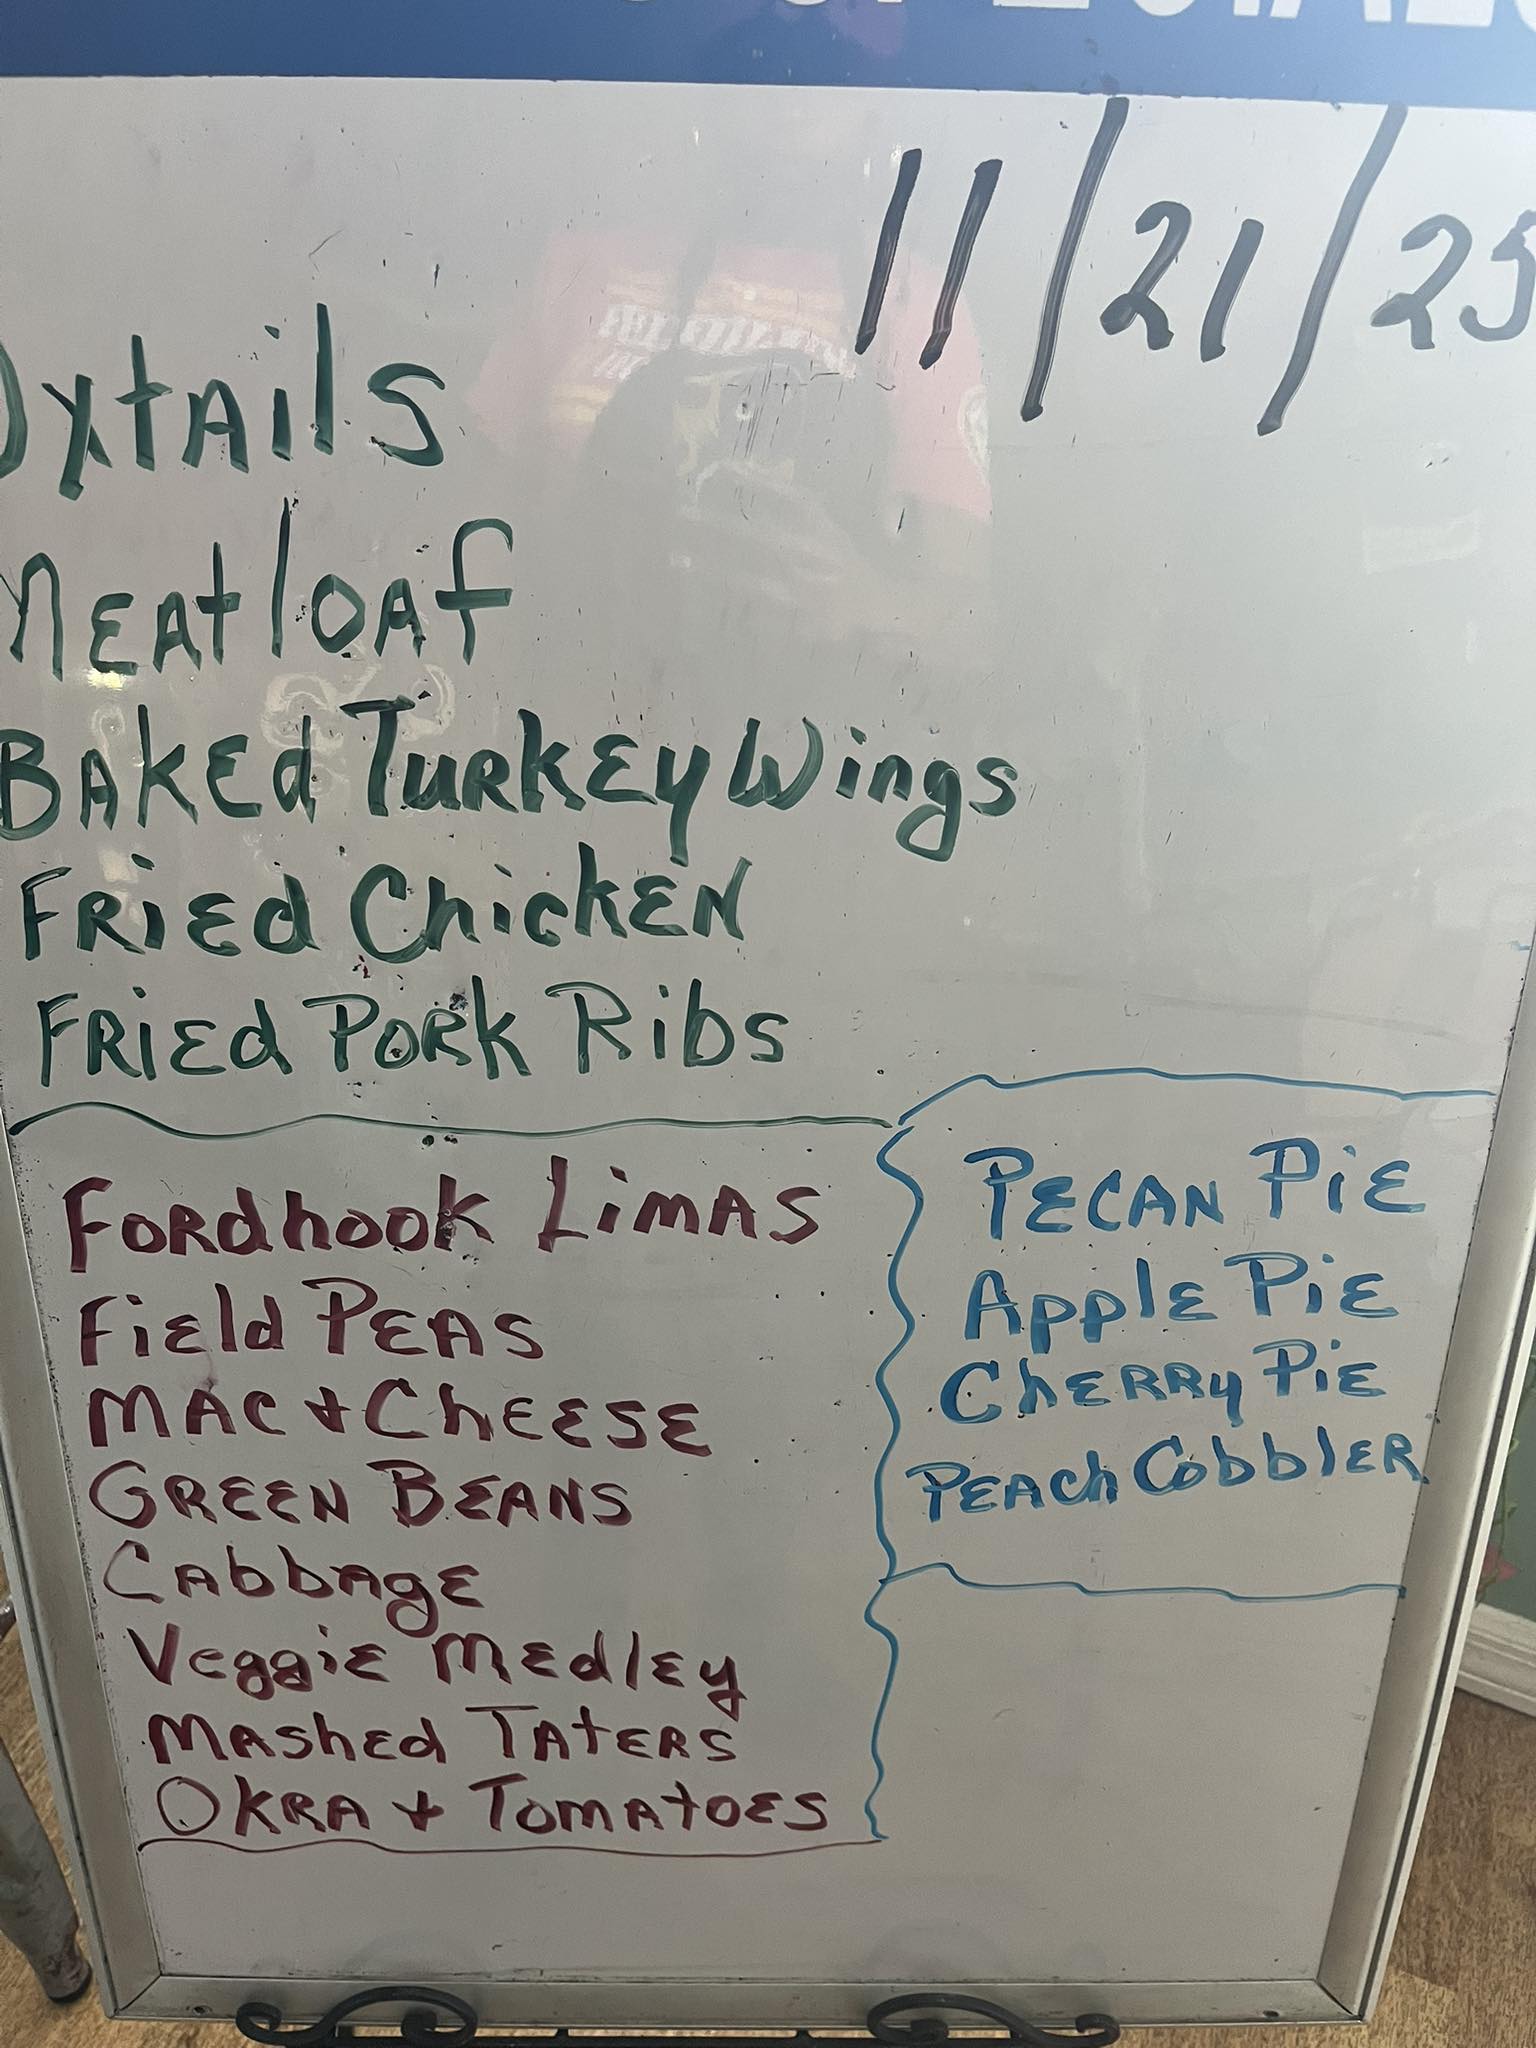 SPECIALS
11/21/25
Oxtails
Meatloaf
Baked Turkey Wings
Fried Chicken
Fried Pork Ribs
Fordhook Limas
Field Peas
Mac + Cheese
Green Beans
Cabbage
Veggie Medley
Mashed Taters
Okra + Tomatoes
Pecan Pie
Apple Pie
Cherry Pie
Peach Cobbler